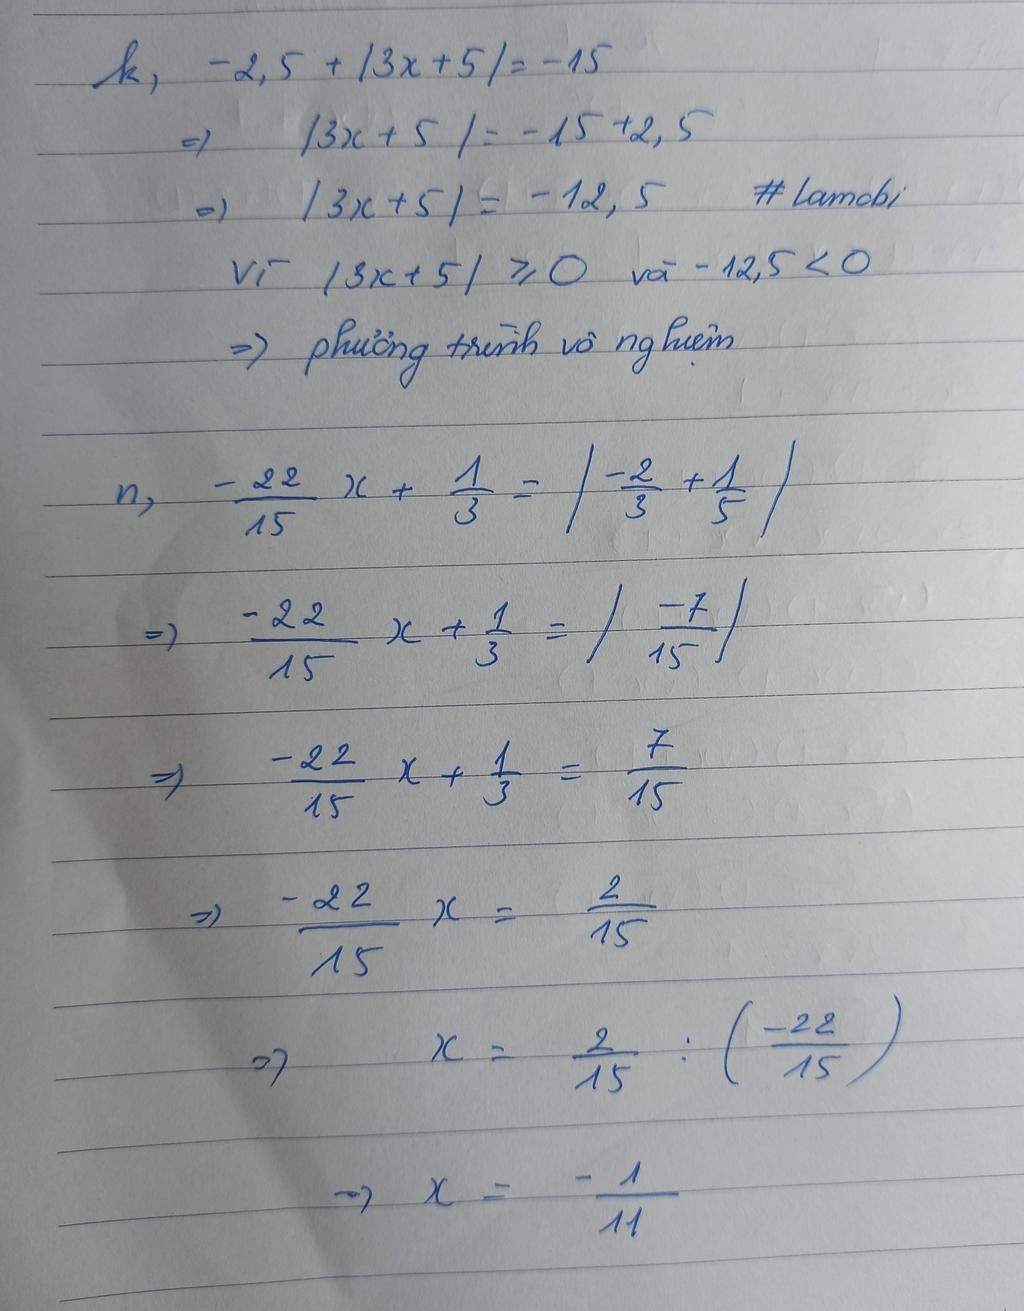 k, -2,5 + |3x+5| = -15
=> |3x+5| = -15+2,5
=> |3x+5| = -12,5 #lamcbi
Vì |3x+5| ≥ 0 và -12,5 < 0
=> phương trình vô nghiệm
n, -22/15 x + 1/3 = |-2/3 + 1/5|
=> -22/15 x + 1/3 = |-7/15|
=> -22/15 x + 1/3 = 7/15
=> -22/15 x = 2/15
=> x = 2/15 : (-22/15)
=> x = -1/11